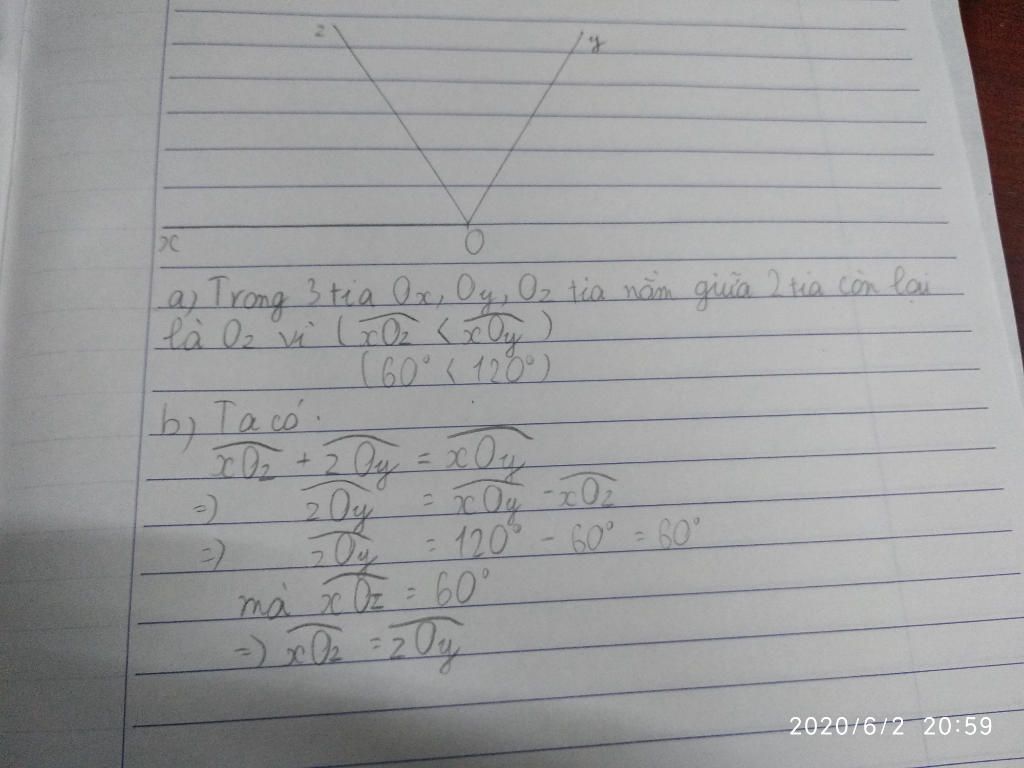 z
y
x
O
a) Trong 3 tia Ox, Oy, Oz tia nằm giữa 2 tia còn lại
là Oz vì ( xOz < xOy )
(60° < 120°)
b) Ta có.
xOz + zOy = xOy
=) zOy = xOy - xOz
=) zOy = 120° - 60° = 60°
mà xOz = 60°
=) xOz = zOy
2020/6/2 20:59